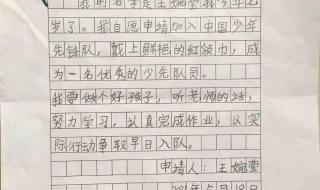 我的名字是王婉莹我今年七
岁了。我自愿申请加入中国少年
先锋队，戴上鲜艳的红领巾，成
为一名优秀的少先队员。
我要做个好孩子，听老师的话，
努力学习，认真完成作业，以实
际行动争取早日入队。
申请人：王婉莹
年5月18日